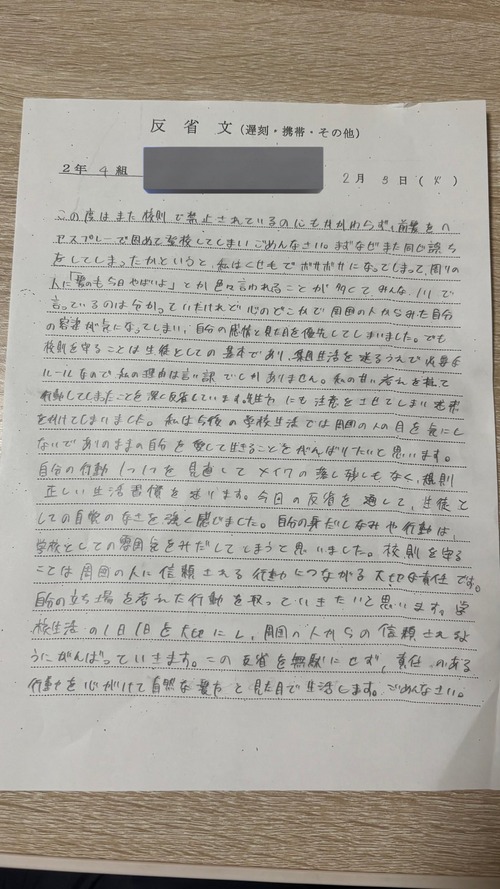 反省文(遅刻・携帯・その他)
2年4組 2月3日(火)
この度はまた校則で禁止されているのにもかかわらず、前髪をヘ
アスプレーで固めて登校してしまいごめんなさい。まずなぜまた同じ誤ち
をしてしまったかというと、私はくせもでボサボサになってしまって、周りの
人に「髪のも今日やばいよ」とか色々言われることが多くて、みんな、ノリで
言っているのは分かっていたけれど心のどこかで周囲の人からみた自分
の容姿が気になってしまい、自分の感情と見た目を優先してしまいました。でも
校則を守ることは生徒としての基本であり、集団生活を送るうえで必要な
ルールなので私の理由は言い訳でしかありません。私の甘い考えを捨て
行動してしまったことを深く反省しています。先生方にも注意をさせてしまい迷惑
をかけてしまいました。私は今後の学校生活では周囲の人の目を気にし
ないでありのままの自分を愛して生きることをがんばりたいと思います。
自分の行動1つ1つを見直してメイクの落し残しもなく、規則
正しい生活習慣を送ります。今回の反省を通して、生徒と
しての自覚のなさを強く感じました。自分の身だしなみや行動は、
学校としての雰囲気をみだしてしまうと思いました。校則を守る
ことは周囲の人に信頼される行動につながる大切な責任です。
自分の立ち場を考れた行動を取っていきたいと思います。学
校生活の1日1日を大切にし、周囲の人からの信頼されるよ
うにがんばっていきます。この反省を無駄にせず、責任のある
行動を心がけて自然な髪方と見た目で生活します。ごめんなさい。